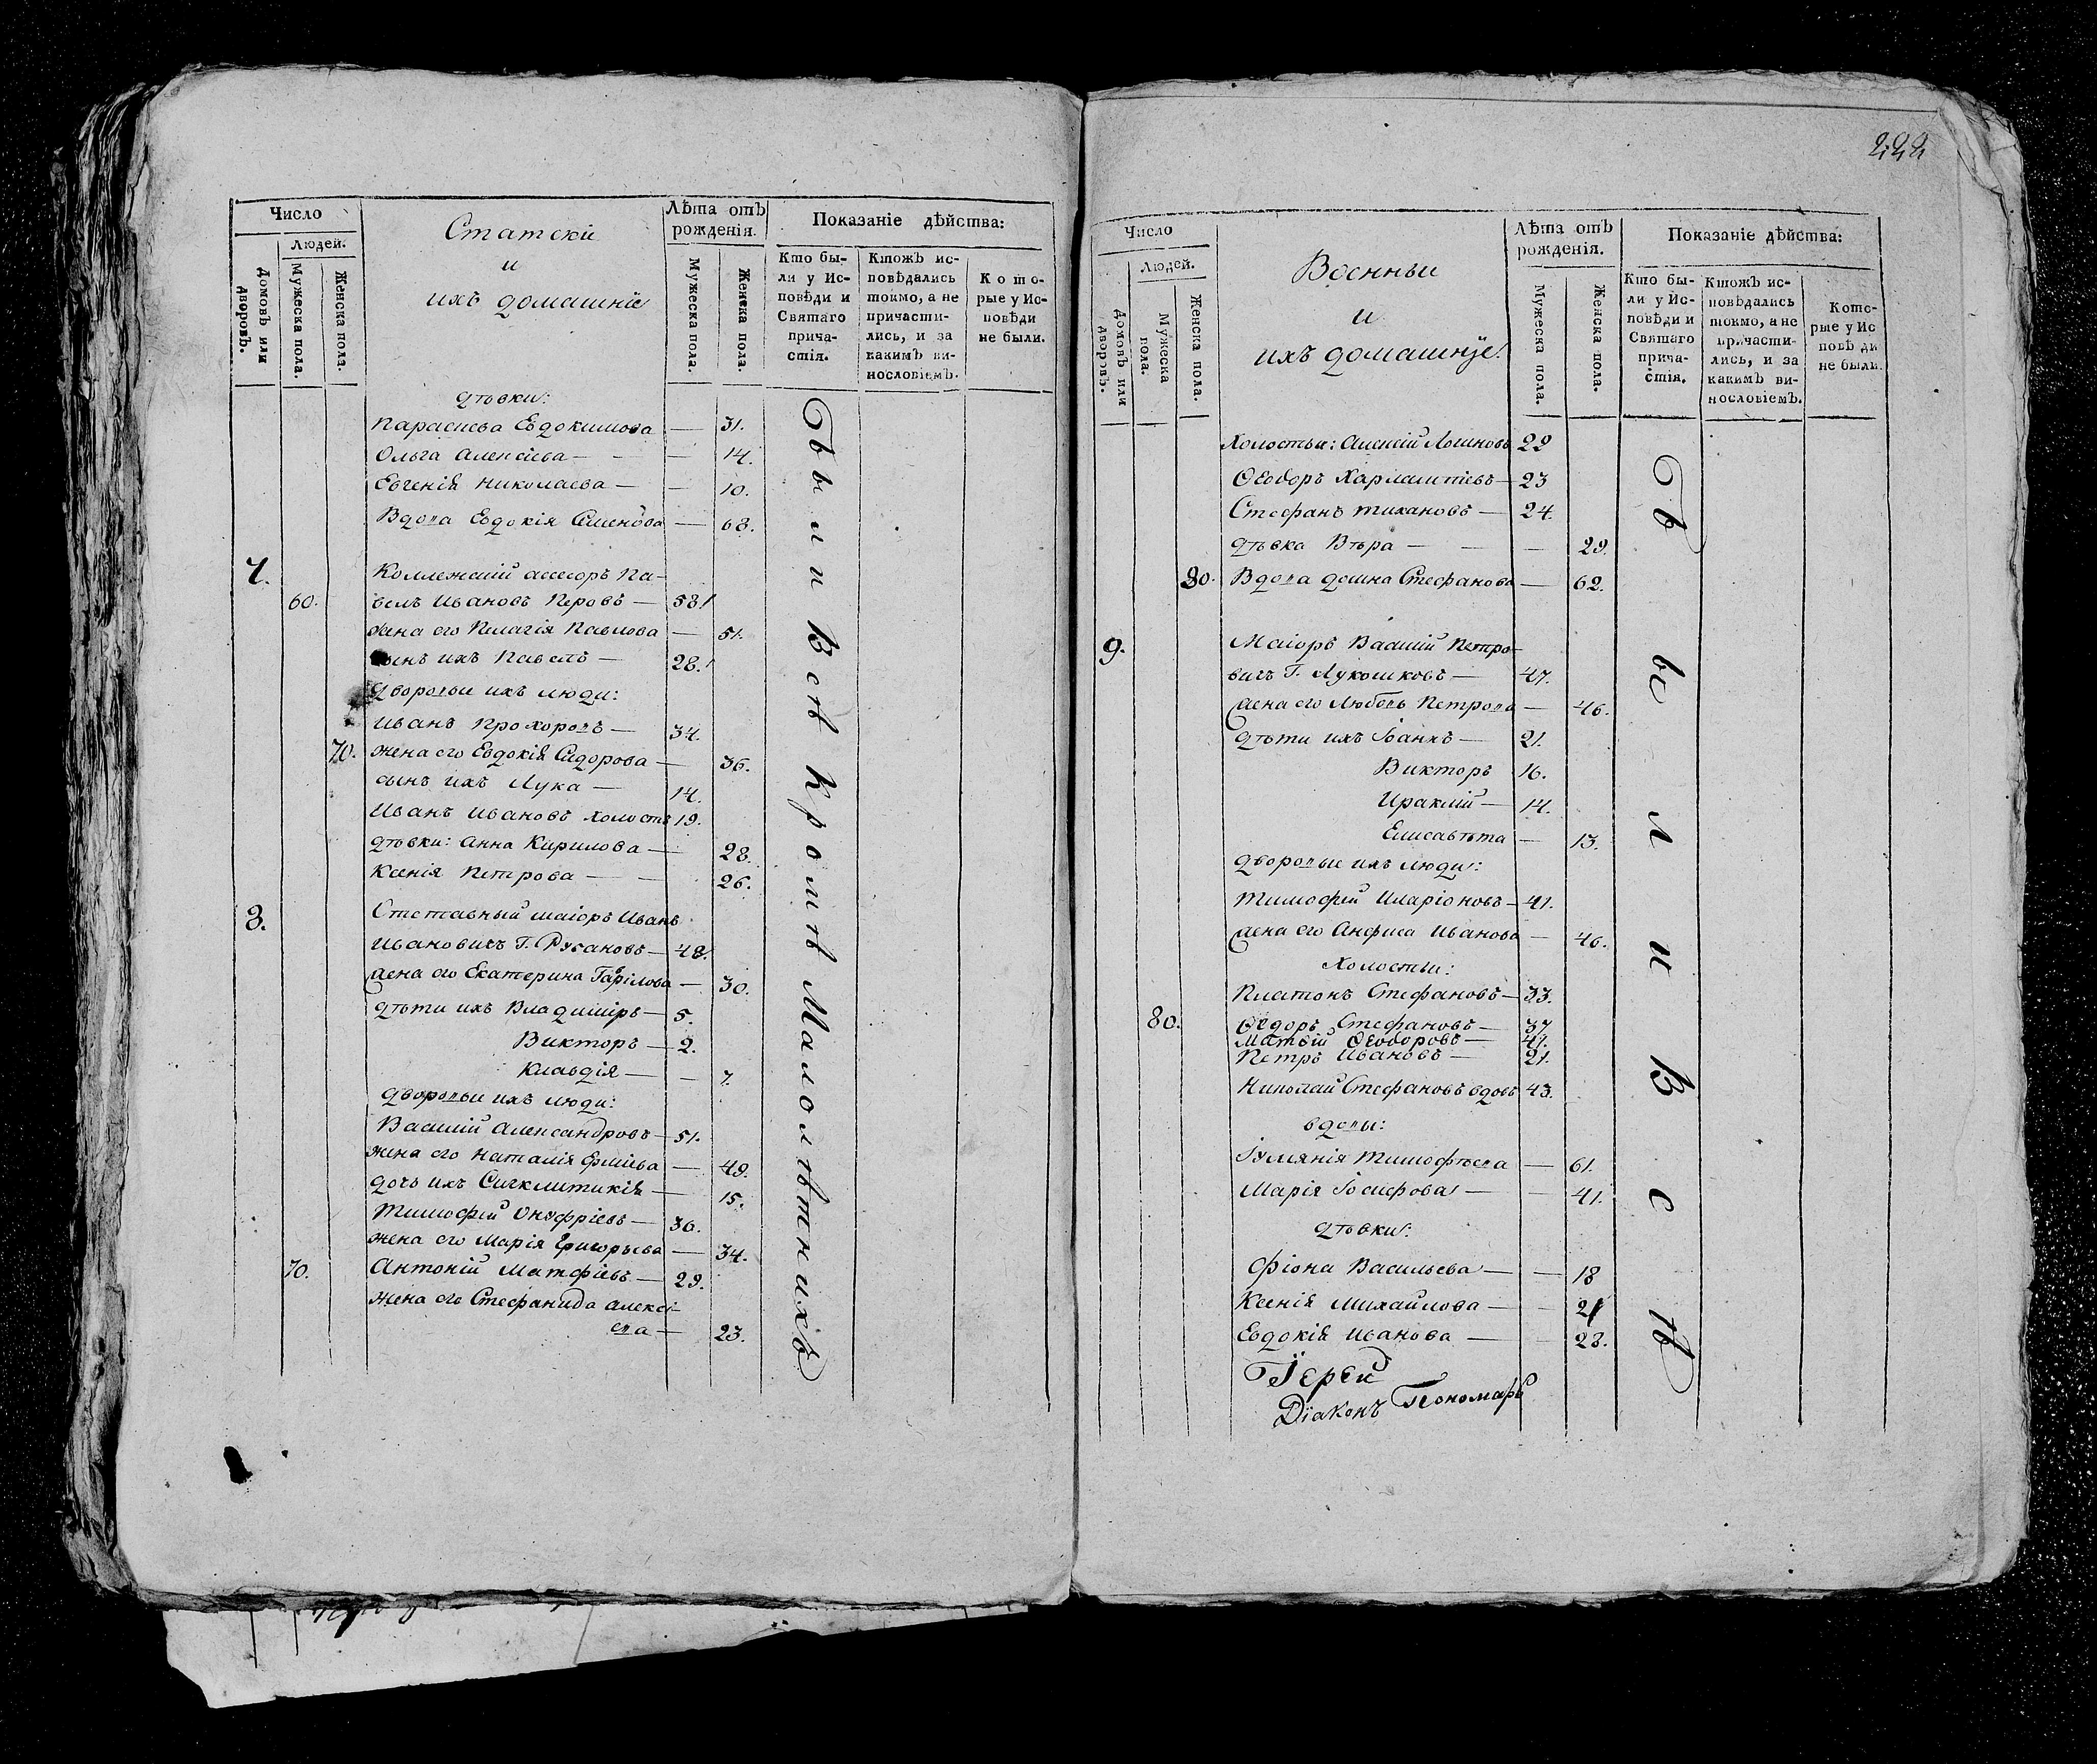 Число
Людей.
Домовъ или дворовъ.
Мужеска пола.
Женска пола.
Статскіе
и
ихъ домашніе
Лѣта отъ рожденія.
Мужеска пола.
Женска пола.
Показаніе дѣйства:
Кто бы-
ли у Ис-
повѣди и
Святаго
прича-
стія.
Ктожъ ис-
повѣдались
токмо, а не
причасти-
лись, и за
какимъ ви-
нословіемъ.
Кото-
рые у Ис-
повѣди
не были.
дѣвки:
Параскева Евдокимова — 31.
Ольга Алексіева — — — 14.
Евгенія Николаева — — 10.
Вдова Евдокія Семенова — 68.
7. Коллежскій ассесоръ Па-
60. велъ Ивановъ Перовъ — 58.
жена его Пелагія Павлова — 51.
сынъ ихъ Павелъ — 28.
Дворовые ихъ люди:
Иванъ Прохоровъ — 34.
70. жена его Евдокія Сидорова — 36.
сынъ ихъ Лука — 14.
Иванъ Ивановъ холостъ 19.
дѣвки: Анна Кирилова — 28.
Ксенія Петрова — — 26.
8. Отставный маіоръ Иванъ
Ивановичъ Г. Русановъ — 48.
жена его Екатерина Гаврілова — 30.
дѣти ихъ Владиміръ — 5.
Викторъ — 2.
Клавдія — — 7.
дворовые ихъ люди:
Василій Александровъ — 51.
жена его Наталія Ермиева — 49.
дочь ихъ Сигклитикія — 15.
Тимофей Онуфріевъ — 36.
жена его Марія Григорьева — 34.
70. Антоній Матфіевъ — 29.
жена его Стефанида Алексі-
ева — 23.
Были Всѣ Кромѣ Малолѣтнихъ
222
Число
Людей.
Домовъ или дворовъ.
Мужеска пола.
Женска пола.
Военные
и
ихъ домашніе.
Лѣта отъ рожденія.
Мужеска пола.
Женска пола.
Показаніе дѣйства:
Кто бы-
ли у Ис-
повѣди и
Святаго
прича-
стія.
Ктожъ ис-
повѣдались
токмо, а не
причасти-
лись, и за
какимъ ви-
нословіемъ.
Кото-
рые у Ис
повѣди
не были.
Холостые: Алексій Логиновъ 22
Ѳеодоръ Харлампіевъ — 23
Стефанъ Тихановъ — 24.
дѣвка Вѣра — — — 29.
80. Вдова Домна Стефанова — 62.
9. Маіоръ Василій Петро-
вичъ Г. Лукошковъ — 47.
жена его Любовь Петрова — 46.
дѣти ихъ Іоаннъ — 21.
Викторъ 16.
Ираклій — 14.
Елисавѣта — 13.
дворовые ихъ люди:
Тимофей Иларіоновъ — 41.
жена его Анфиса Иванова — 46.
Холостые:
Платонъ Стефановъ — 33.
80. Ѳедоръ Стефановъ — 37.
Матвій Ѳеодоровъ — 47.
Петръ Ивановъ — 21.
Николай Стефановъ вдовъ 43.
вдовы:
Іуліанія Тимофѣева — 61.
Марія Іосифова — — 41.
дѣвки:
Фіона Васильева — — 18
Ксенія Михайлова — — 21
Евдокія Иванова — — 28.
Были Всѣ
Іерей
Діаконъ Пономарь